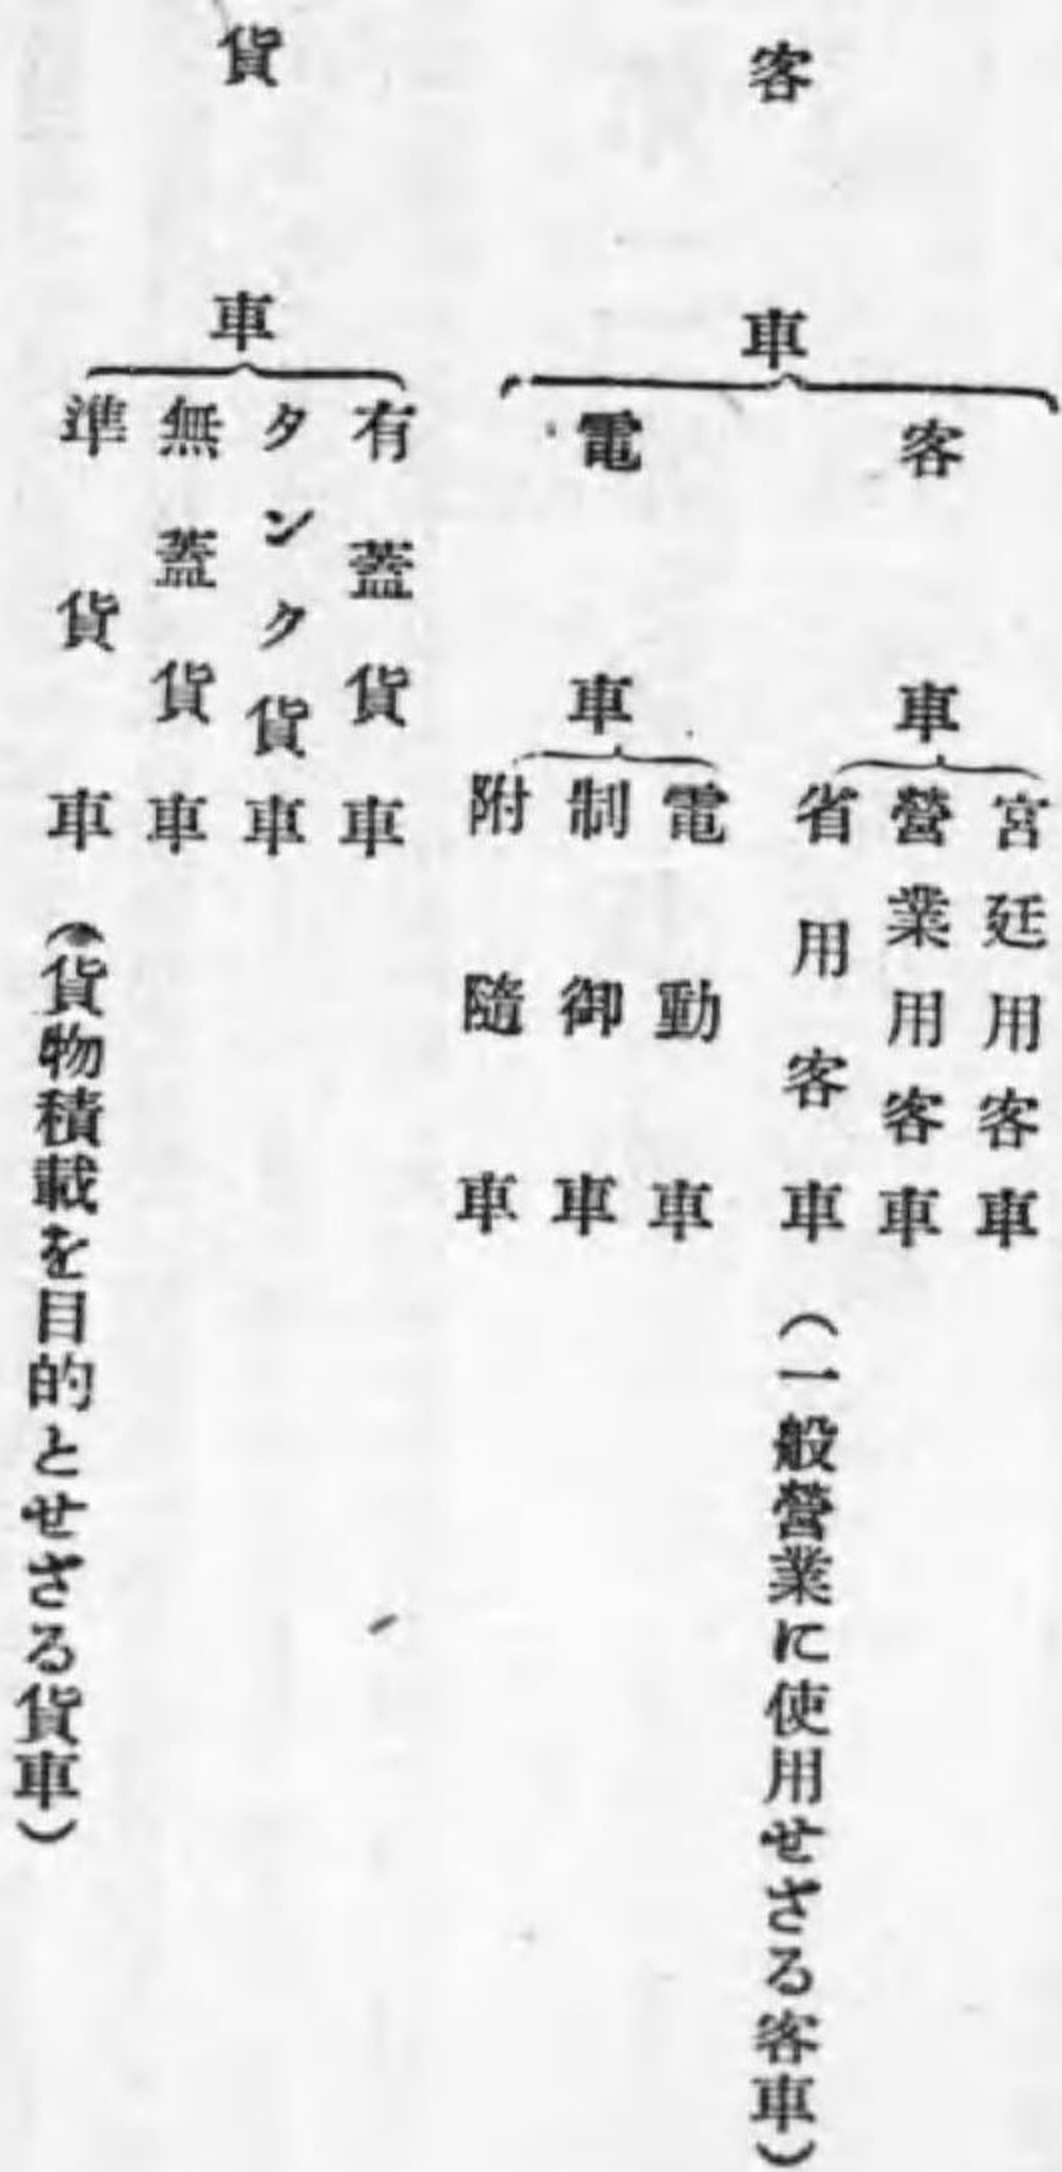 客車
客車
宮廷用客車
營業用客車
省用客車(一般營業に使用せざる客車)
電車
電動車
制御車
附隨車
貨車
有蓋貨車
タンク貨車
無蓋貨車
準貨車(貨物積載を目的とせざる貨車)